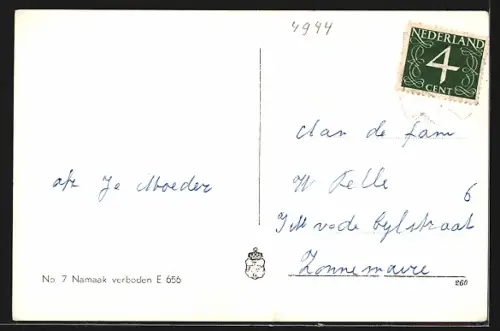 4944
NEDERLAND
4
CENT
Aan de fam
W Felle
6
J M v de Bijlstraat
Zonnemaire
afz Je Moeder
No. 7 Namaak verboden E 656
260